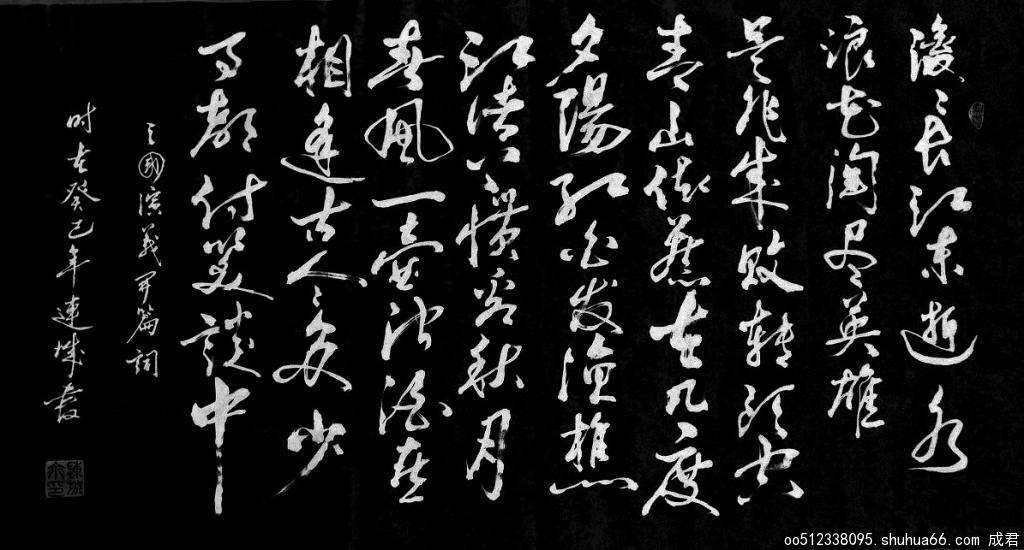 滚滚长江东逝水
浪花淘尽英雄
是非成败转头空
青山依舊在几度
夕陽红白发渔樵
江渚上惯看秋月
春風一壶浊酒喜
相逢古今多少
事都付笑談中
三國演義开篇词
时在癸巳年連城書
oo512338095.shuhua66.com 成君